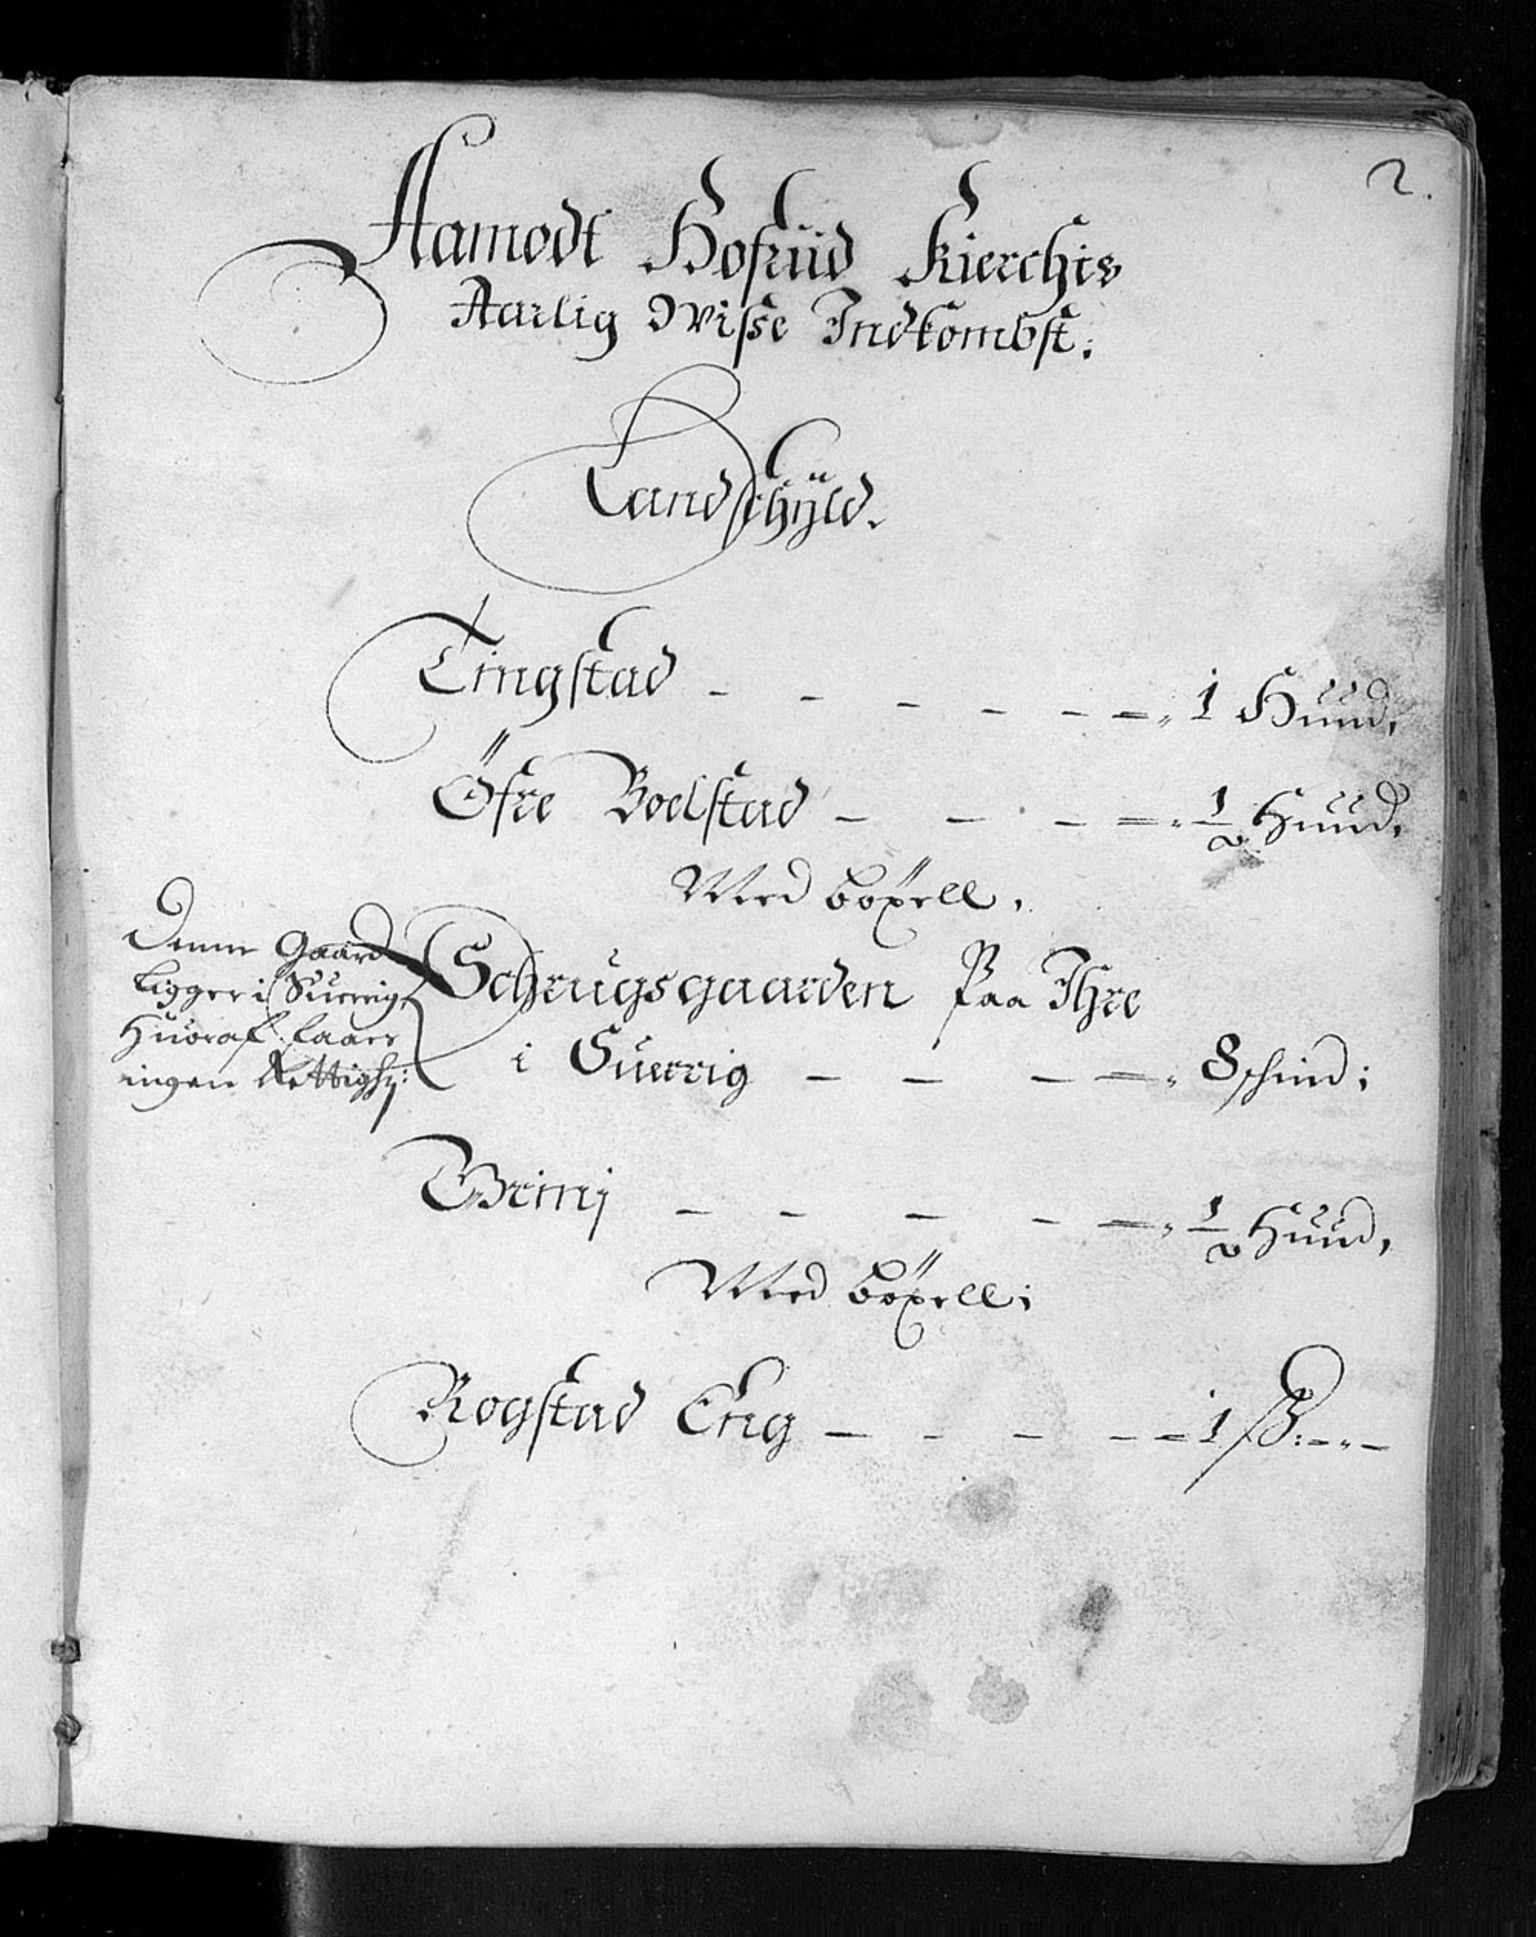 2.
Aamodt Hofuid Kierchis
Aarlig Wisse Indkombst.
Landschÿld.
Tingstad - - - - - - 1 Huud,
Öfre Boelstad - - - - 1/2 Huud,
Med böxell.
Denne Gaard
ligger i Suerrig,
Huoraf faaes
ingen Rettighz:
Schrugsgaarden Paa Ihre
i Suerrig - - - - 8 schind;
Grinj - - - - - 1/2 Huud,
Med böxell;
Rogstad Eng - - - - - 1 ß: